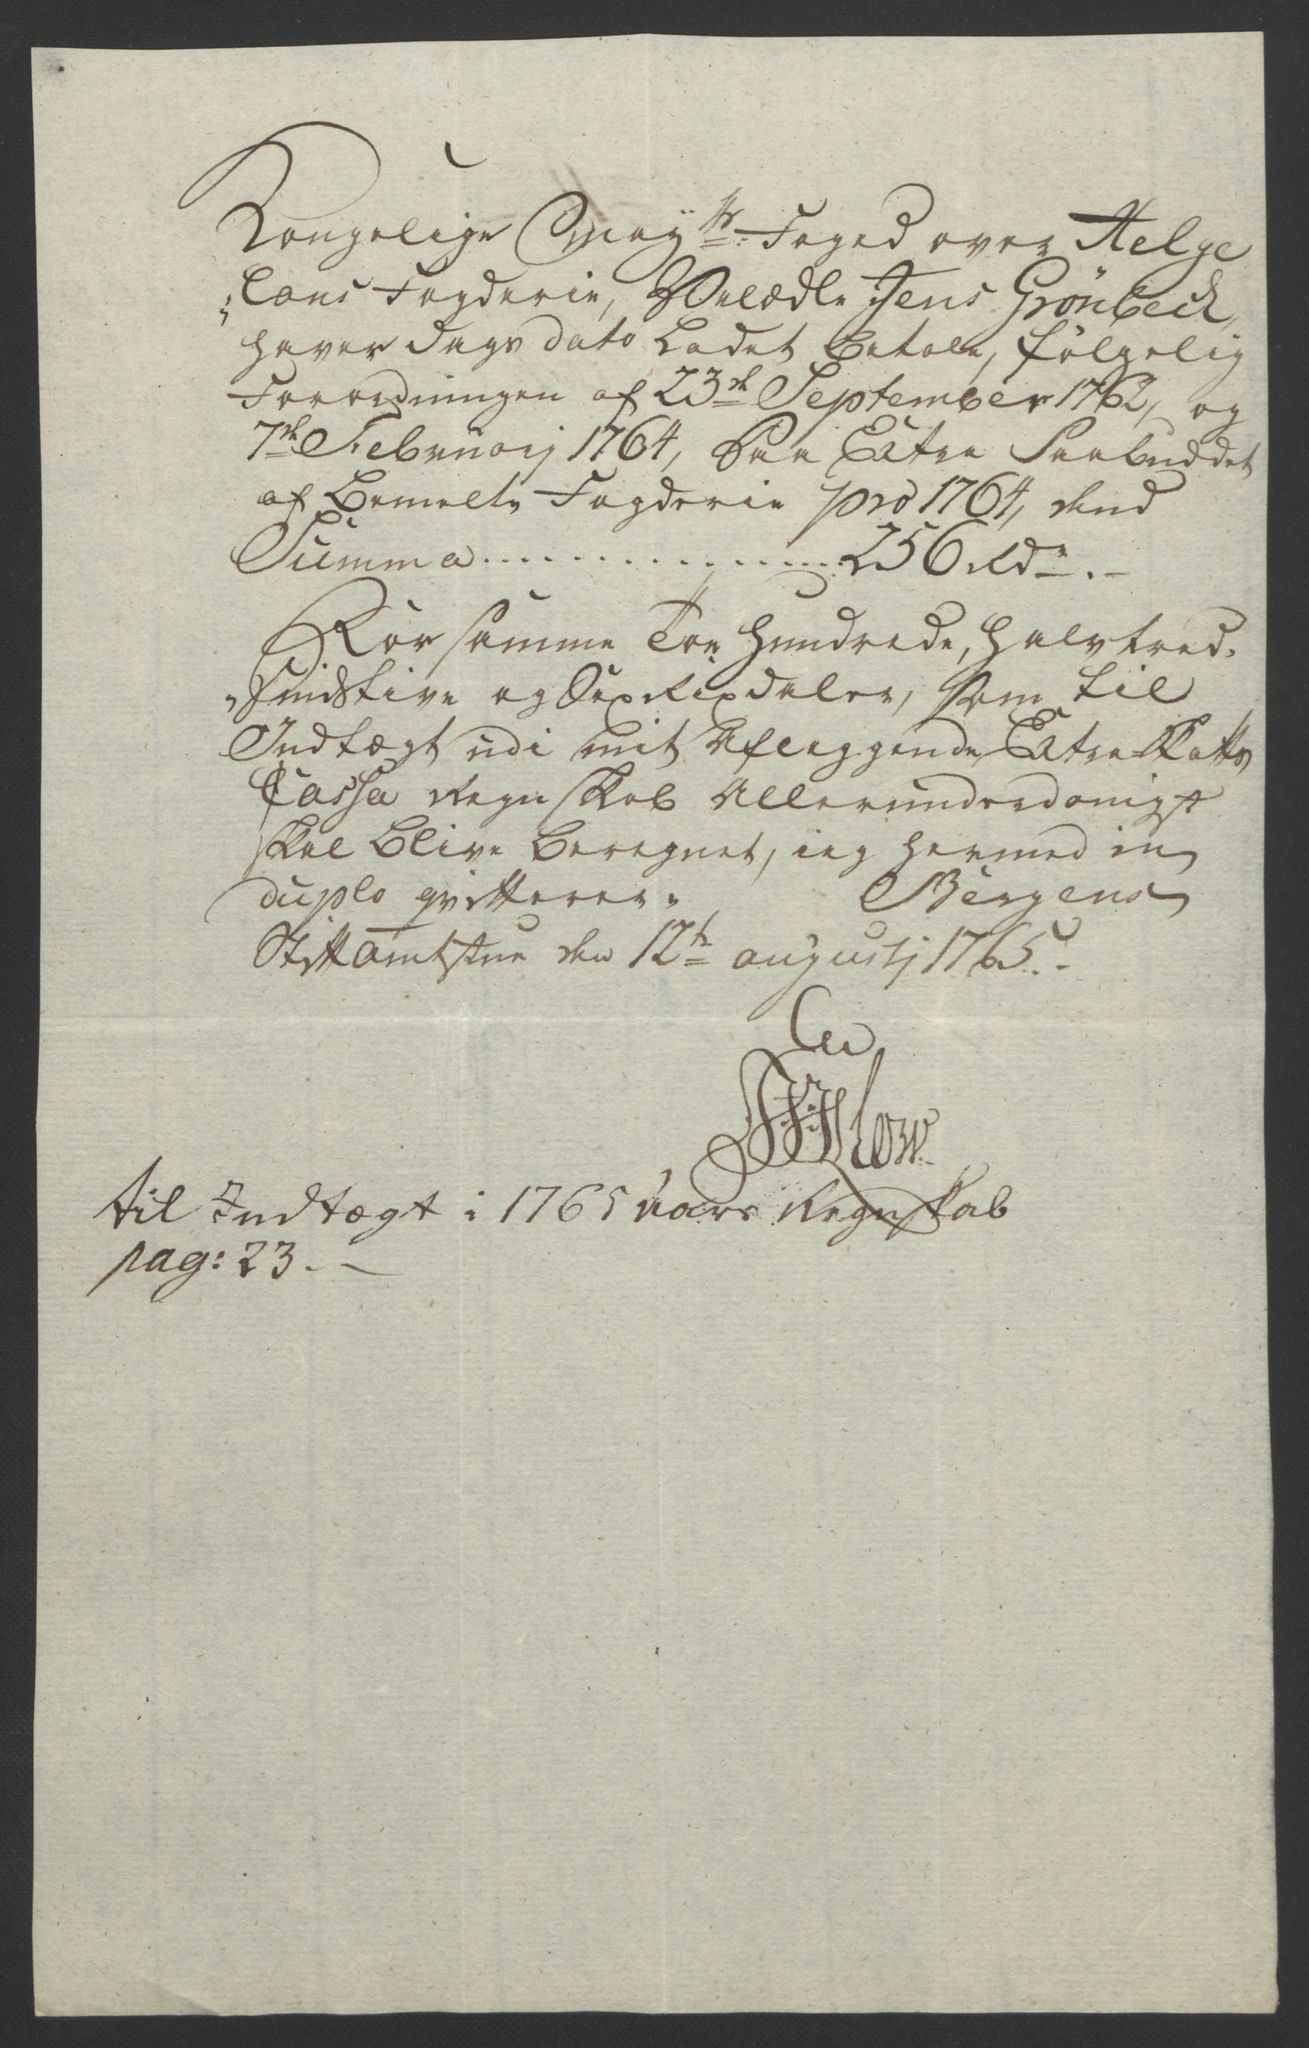 Kongelige May:ts Foged over Helge
„lans Fogderie, Velædle Jens Grönbeck,
haver dags dato Ladet betale, følgelig
Forordningen af 23de September 1762, og
7de Februarij 1764, Paa Extra Paabuddet
af bemelte Fogderie pro 1764, dend
Summa .............. 256 Rdr. –
For samme Toe hundrede, halvtred-
„sindstive og Sex Rixdaler, som til
Indtægt udi mit Aflæggende Extra Skatts
Cassa Regnskab Allerunderdanigst
skal blive beregnet, ieg hermed in
duplo qvitterer. Bergens
Stiftamtstue den 12te augustj 1765. –
til Indtægt i 1765 Aars Regnskab
pag: 23. –